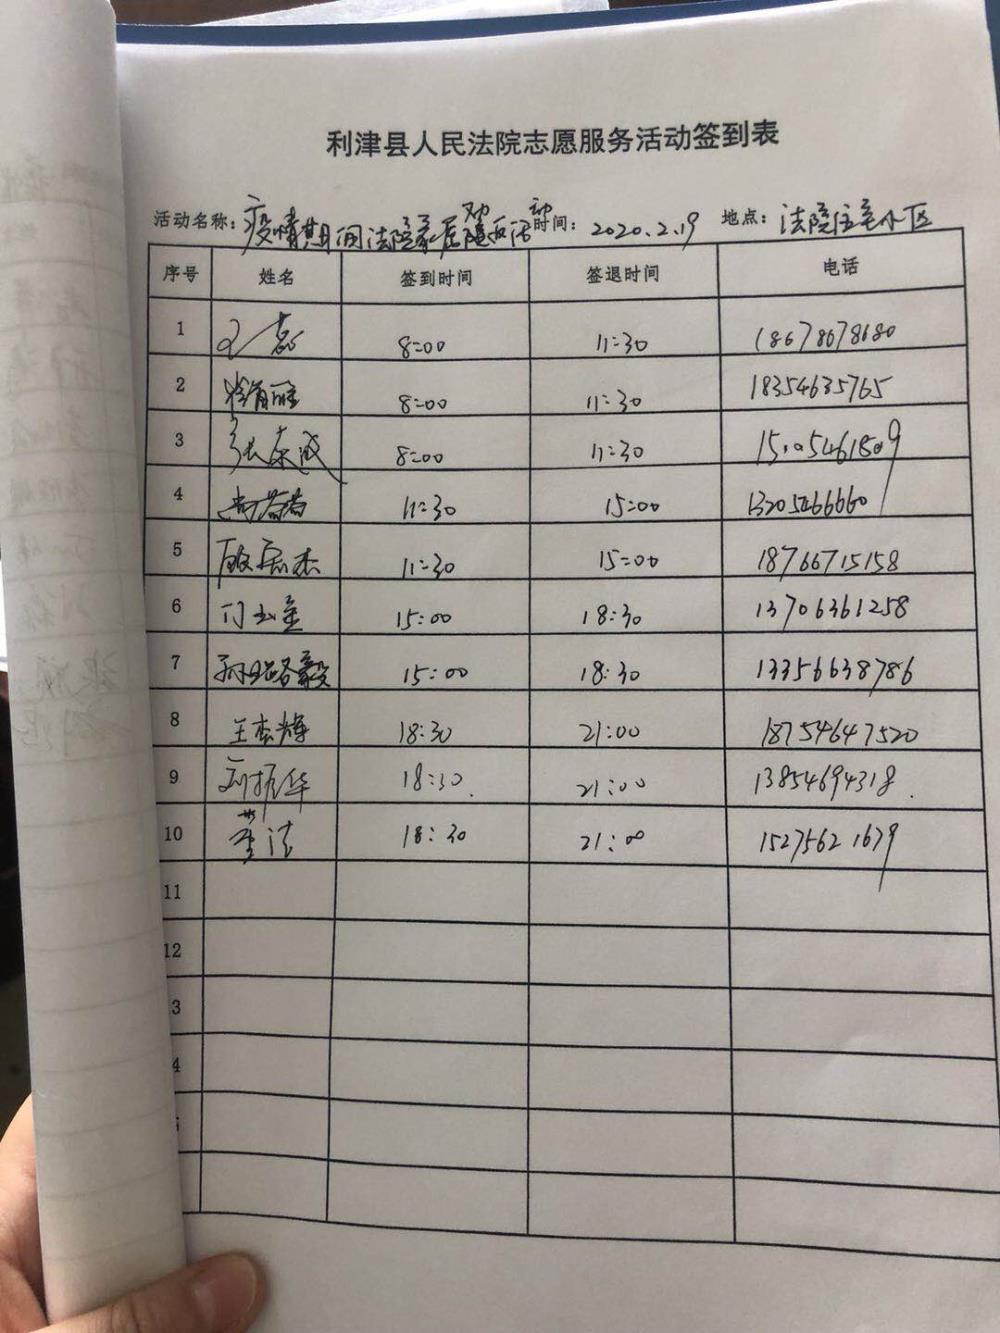 利津县人民法院志愿服务活动签到表
活动名称：疫情期间法院家属 时间：2020.2.19 地点：法院住宅小区
序号 姓名 签到时间 签退时间 电话
1 8:00 11:30 18678678680
2 8:00 11:30 18354635765
3 张东成 8:00 11:30 15105461809
4 尚蓓蓓 11:30 15:00 13205466660
5 11:30 15:00 18766715158
6 门玉金 15:00 18:30 13706361258
7 15:00 18:30 13356638786
8 王杰辉 18:30 21:00 18754647520
9 刘振华 18:30 21:00 13854694318
10 董洁 18:30 21:00 15275621679
11
12
3
4